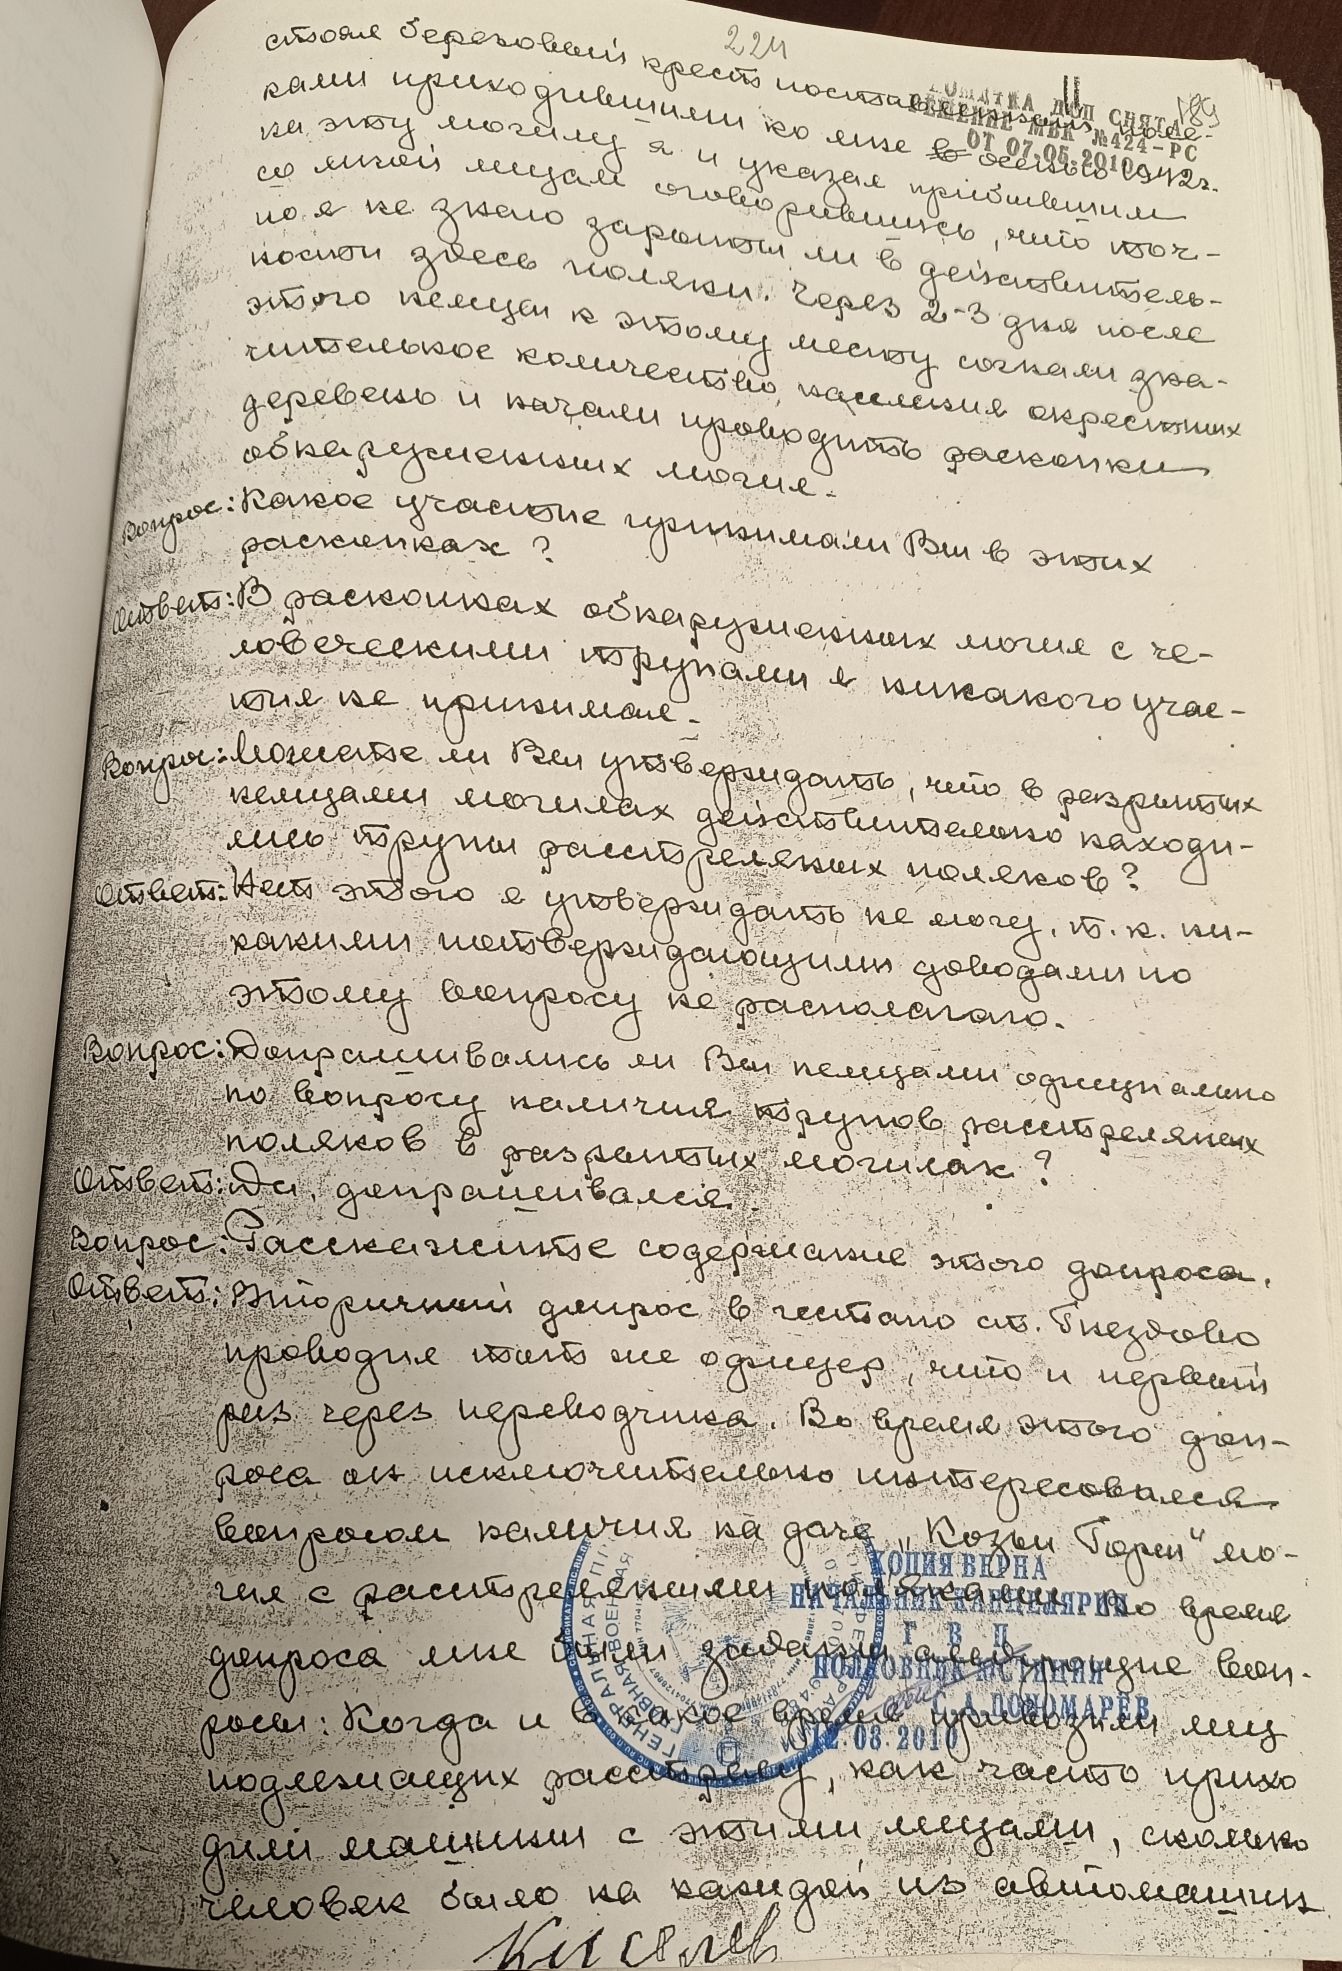 224
189
11
ПОМЕТКА ДСП СНЯТА
РЕШЕНИЕ МВК №424-РС
ОТ 07.05.2010
стоял березовый крест поставленный поля-
ками приходившими ко мне в осенью 1942г.
на эту могилу я и указал прибывшим
со мной лицам оговорившись, что точ-
но я не знаю зарыты ли в действитель-
ности здесь поляки. Через 2-3 дня после
этого немцы к этому месту согнали зна-
чительное количество населения окрестных
деревень и начали проводить раскопки
обнаруженных могил.
Вопрос: Какое участие принимали Вы в этих
раскопках?
Ответ: В раскопках обнаруженных могил с че-
ловеческими трупами я никакого учас-
тия не принимал.
Вопрос: Можете ли Вы утверждать, что в разрытых
немцами могилах действительно находи-
лись трупы расстреляных поляков?
Ответ: Нет этого я утверждать не могу, т.к. ни-
какими потверждающими доводами по
этому вопросу не располагаю.
Вопрос: Допрашивались ли Вы немцами официально
по вопросу наличия трупов расстреляных
поляков в разрытых могилах?
Ответ: Да, допрашивался.
Вопрос: Расскажите содержание этого допроса.
Ответ: Вторичный допрос в гестапо ст. Гнездово
проводил тот же офицер, что и первый
раз через переводчика. Во время этого доп-
роса он исключительно интересовался
вопросом наличия на даче „Козьи Горы" мо-
гил с расстреляными поляками. Во время
допроса мне были заданы следующие воп-
росы: Когда и в какое время привозили лиц
подлежащих расстрелу, как часто прихо
дили машины с этими лицами, сколько
человек было на каждой из автомашин
Киселев
КОПИЯ ВЕРНА
НАЧАЛЬНИК КАНЦЕЛЯРИИ
Г В П
ПОЛКОВНИК ЮСТИЦИИ
С.А.ПОНОМАРЕВ
12.08.2010
ГЕНЕРАЛЬНАЯ
ГЛАВНАЯ ВОЕННАЯ